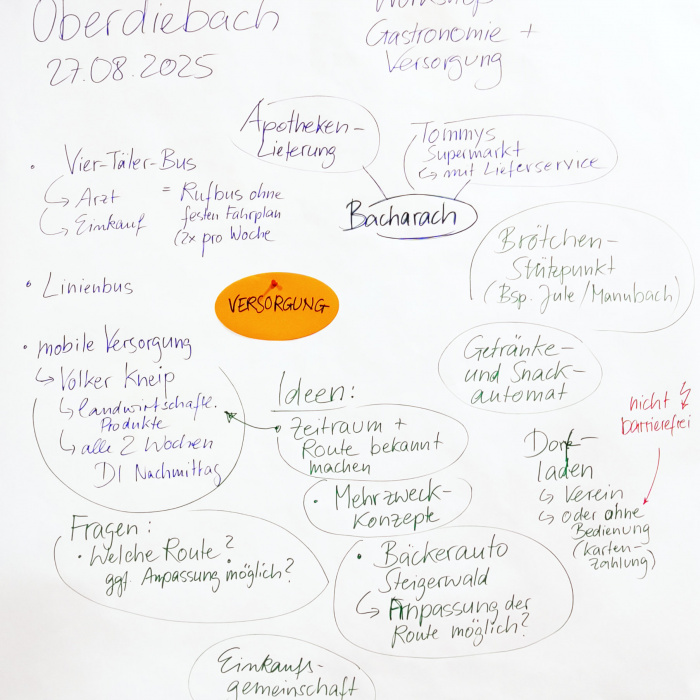 Oberdiebach
27.08.2025
Workshop
Gastronomie +
Versorgung
Apotheken-
Lieferung
Tommys
Supermarkt
↳ mit Lieferservice
Bacharach
• Vier-Täler-Bus
↳ Arzt
↳ Einkauf
= Rufbus ohne
festen Fahrplan
(2x pro Woche
• Linienbus
VERSORGUNG
Brötchen-
Stützpunkt
(Bsp. Jule/Mannbach)
• mobile Versorgung
↳ Volker Kneip
↳ landwirtschaftl.
Produkte
↳ alle 2 Wochen
DI Nachmittag
Getränke-
und Snack-
automat
Ideen:
• Zeitraum +
Route bekannt
machen
• Mehrzweck-
Konzepte
nicht
barrierefrei
Dorf-
laden
↳ Verein
↳ oder ohne
Bedienung
(Karten-
zahlung)
Fragen:
• Welche Route?
ggf. Anpassung möglich?
• Bäckerauto
Steigerwald
↳ Anpassung der
Route möglich?
Einkaufs-
gemeinschaft